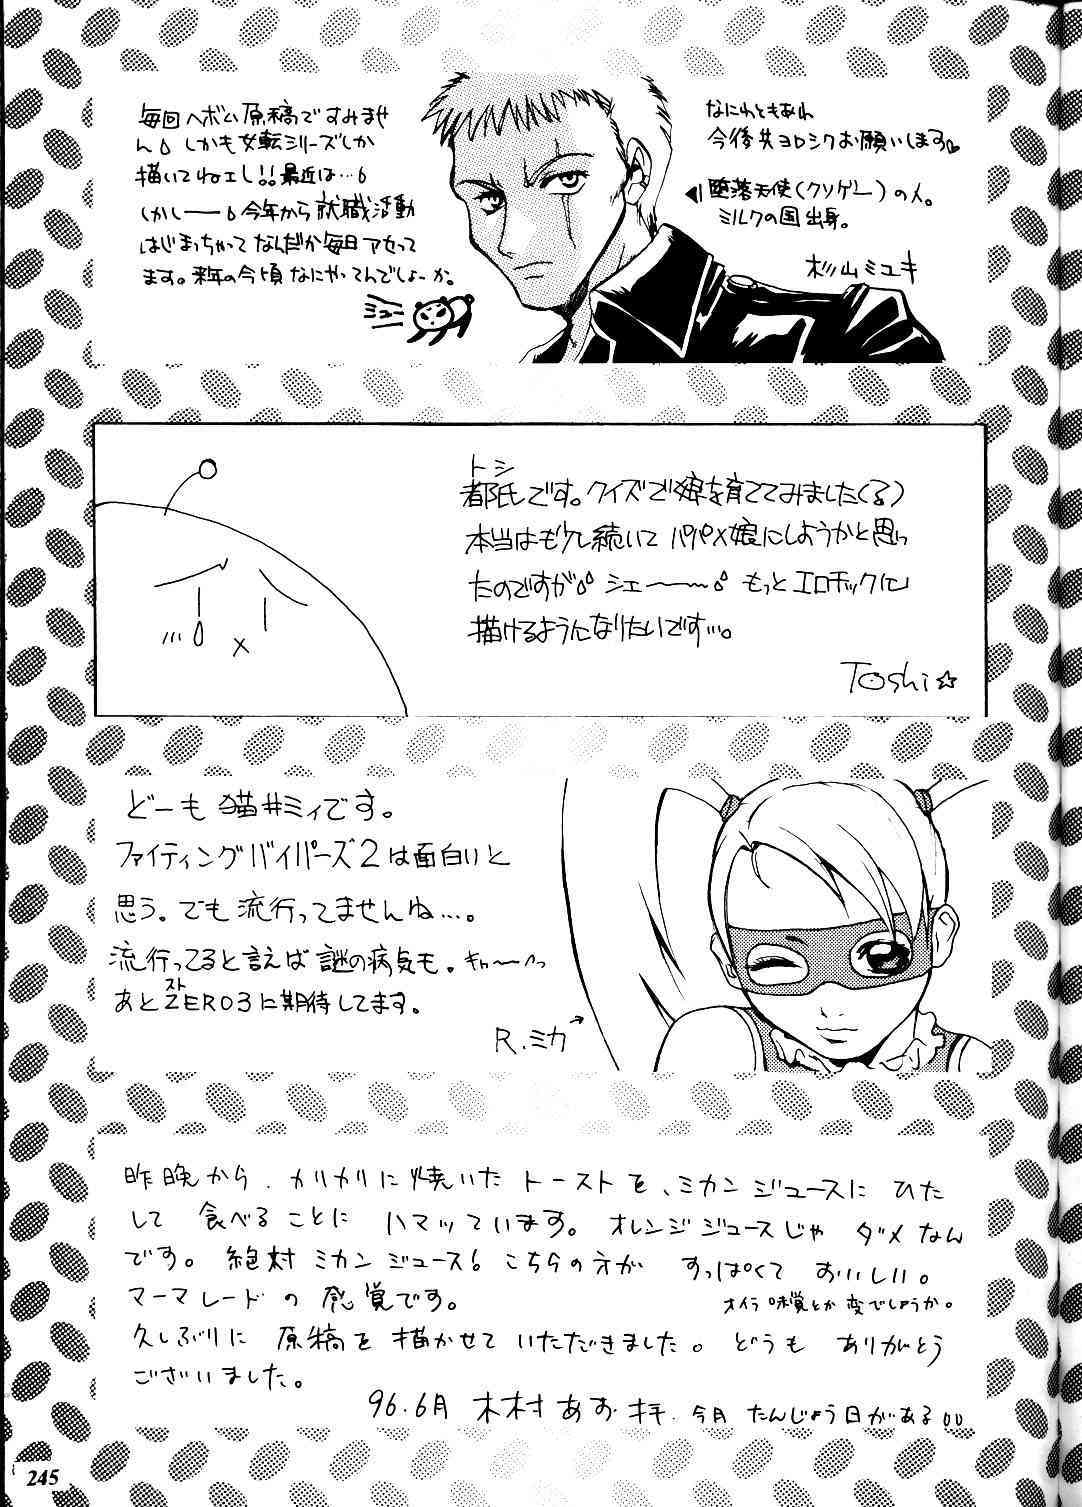 毎回ヘボい原稿ですみませ
ん。しかも女転シリーズしか
描いてねェし!!最近は…。
しかしー。今年から就職活動
はじまっちゃってなんだか毎日アセって
ます。来年の今頃なにやってんでしょーか。
ミュー
なにわともあれ
今後共ヨロシクお願いします♡
◀堕落天使(クソゲー)の人。
ミルクの国出身。
杉山ミユキ
トシ
都氏です。クイズで娘を育ててみました(る)
本当はも少し続いてパパ×娘にしようかと思っ
たのですが。シェ〜〜。もっとエロチックに
描けるようになりたいです…。
Toshi☆
どーも猫井ミィです。
ファイティングバイパーズ2は面白いと
思う。でも流行ってませんね…。
流行ってると言えば謎の病気も。キャ〜っ
スト
あとZERO3に期待してます。
R.ミカ→
昨晩から、カリカリに焼いたトーストを、ミカンジュースにひた
して食べることにハマッています。オレンジジュースじゃダメなん
です。絶対ミカンジュース!こちらの方がすっぱくておいしい。
マーマレードの感覚です。
オイラ味覚とか変でしょうか。
久しぶりに原稿を描かせていただきました。どうもありがとう
ございました。
96.6月 木村あお拝.今月たんじょう日がある
245